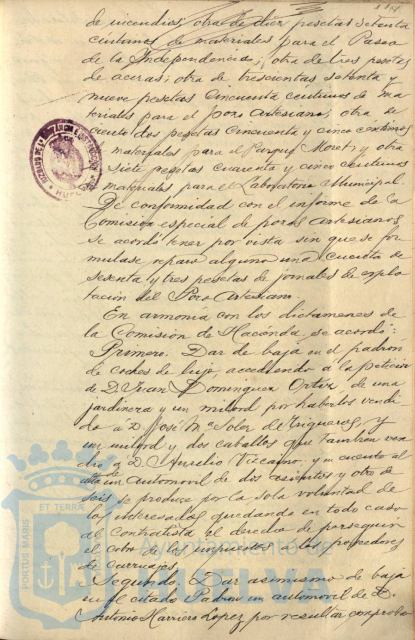 de incendios; otra de diez pesetas setenta
céntimos de materiales para el Paseo
de la Independencia; otra de tres pesetas
de aceras; otra de trescientas setenta y
nueve pesetas cincuenta céntimos de ma
teriales para el pozo Artesiano; otra de
ciento dos pesetas cincuenta y cinco céntimos
materiales para el Parque Moret; y otra
siete pesetas cuarenta y cinco céntimos
materiales para el Laboratorio Municipal.
De conformidad con el informe de la
Comision especial de pozos artesianos,
se acordó tener por vista sin que se for
mulase reparo alguno una cuenta de
sesenta y tres pesetas de jornales de explo
tación del Pozo Artesiano.
En armonia con los dictamenes de
la Comisión de Hacienda se acordó:
Primero. Dar de baja en el padron
de coches de lujo, accediendo a la peticion
de D. Juan Dominguez Ortiz de una
jardinera y un milord por haberlos vendi
do a D. José M. Soler de
un milord y dos caballos que tambien ven
dió a D. Aurelio Vizcaino, y en cuanto al
alta un automovil de dos asientos y otro de
seis se produce por la sola voluntad de
los interesados quedando en todo caso
al Contratista el derecho de perseguir
el cobro de los impuestos a los poseedores
de carruajes.
Segundo. Dar asimismo de baja
en el citado Padron un automovil de D.
Antonio Marriero Lopez por resultar comproba
ET TERRAE
PORTUS MARIS
Ayuntamiento de
HUELVA